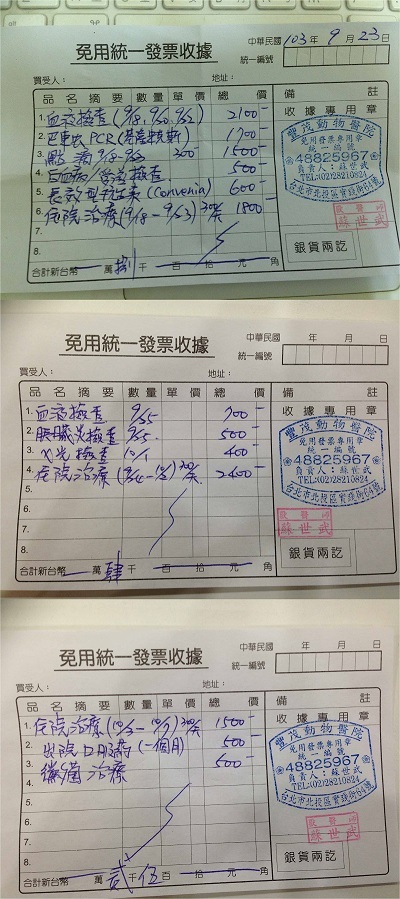 免用統一發票收據
中華民國 103 年 9 月 23 日
統一編號
買受人： 地址：
品名摘要 數量 單價 總價 備註
收據專用章
1. 血液檢查 (9/18, 9/20, 9/22) 2100
2. PCR 1700
3. 點滴 9/18-9/23 300 1500
4. 500
5. 長效型 (Convenia) 600
6. 住院治療 (9/18-9/23) 300/天 1800
7.
8.
合計新台幣 萬 捌 千 百 拾 元 角
豐茂動物醫院
免用發票專用章
統一編號
48825967
負責人：蘇世武
TEL:(02)28210824
台北市北投區實踐街64號
獸醫師
蘇世武
銀貨兩訖
免用統一發票收據
中華民國 年 月 日
統一編號
買受人： 地址：
品名摘要 數量 單價 總價 備註
收據專用章
1. 血液檢查 9/25 700
2. 胰臟炎檢查 9/25 500
3. X光檢查 10/1 400
4. 住院治療 (9/24-10/1) 300/天 2400
5.
6.
7.
8.
合計新台幣 萬 肆 千 百 拾 元 角
豐茂動物醫院
免用發票專用章
統一編號
48825967
負責人：蘇世武
TEL:(02)28210824
台北市北投區實踐街64號
獸醫師
蘇世武
銀貨兩訖
免用統一發票收據
中華民國 年 月 日
統一編號
買受人： 地址：
品名摘要 數量 單價 總價 備註
收據專用章
1. 住院治療 (10/3-10/7) 300/天 1500
2. 出院口服藥 (一個月) 500
3. 黴菌治療 500
4.
5.
6.
7.
8.
合計新台幣 萬 貳 千 伍 百 拾 元 角
豐茂動物醫院
免用發票專用章
統一編號
48825967
負責人：蘇世武
TEL:(02)28210824
台北市北投區實踐街64號
獸醫師
蘇世武
銀貨兩訖